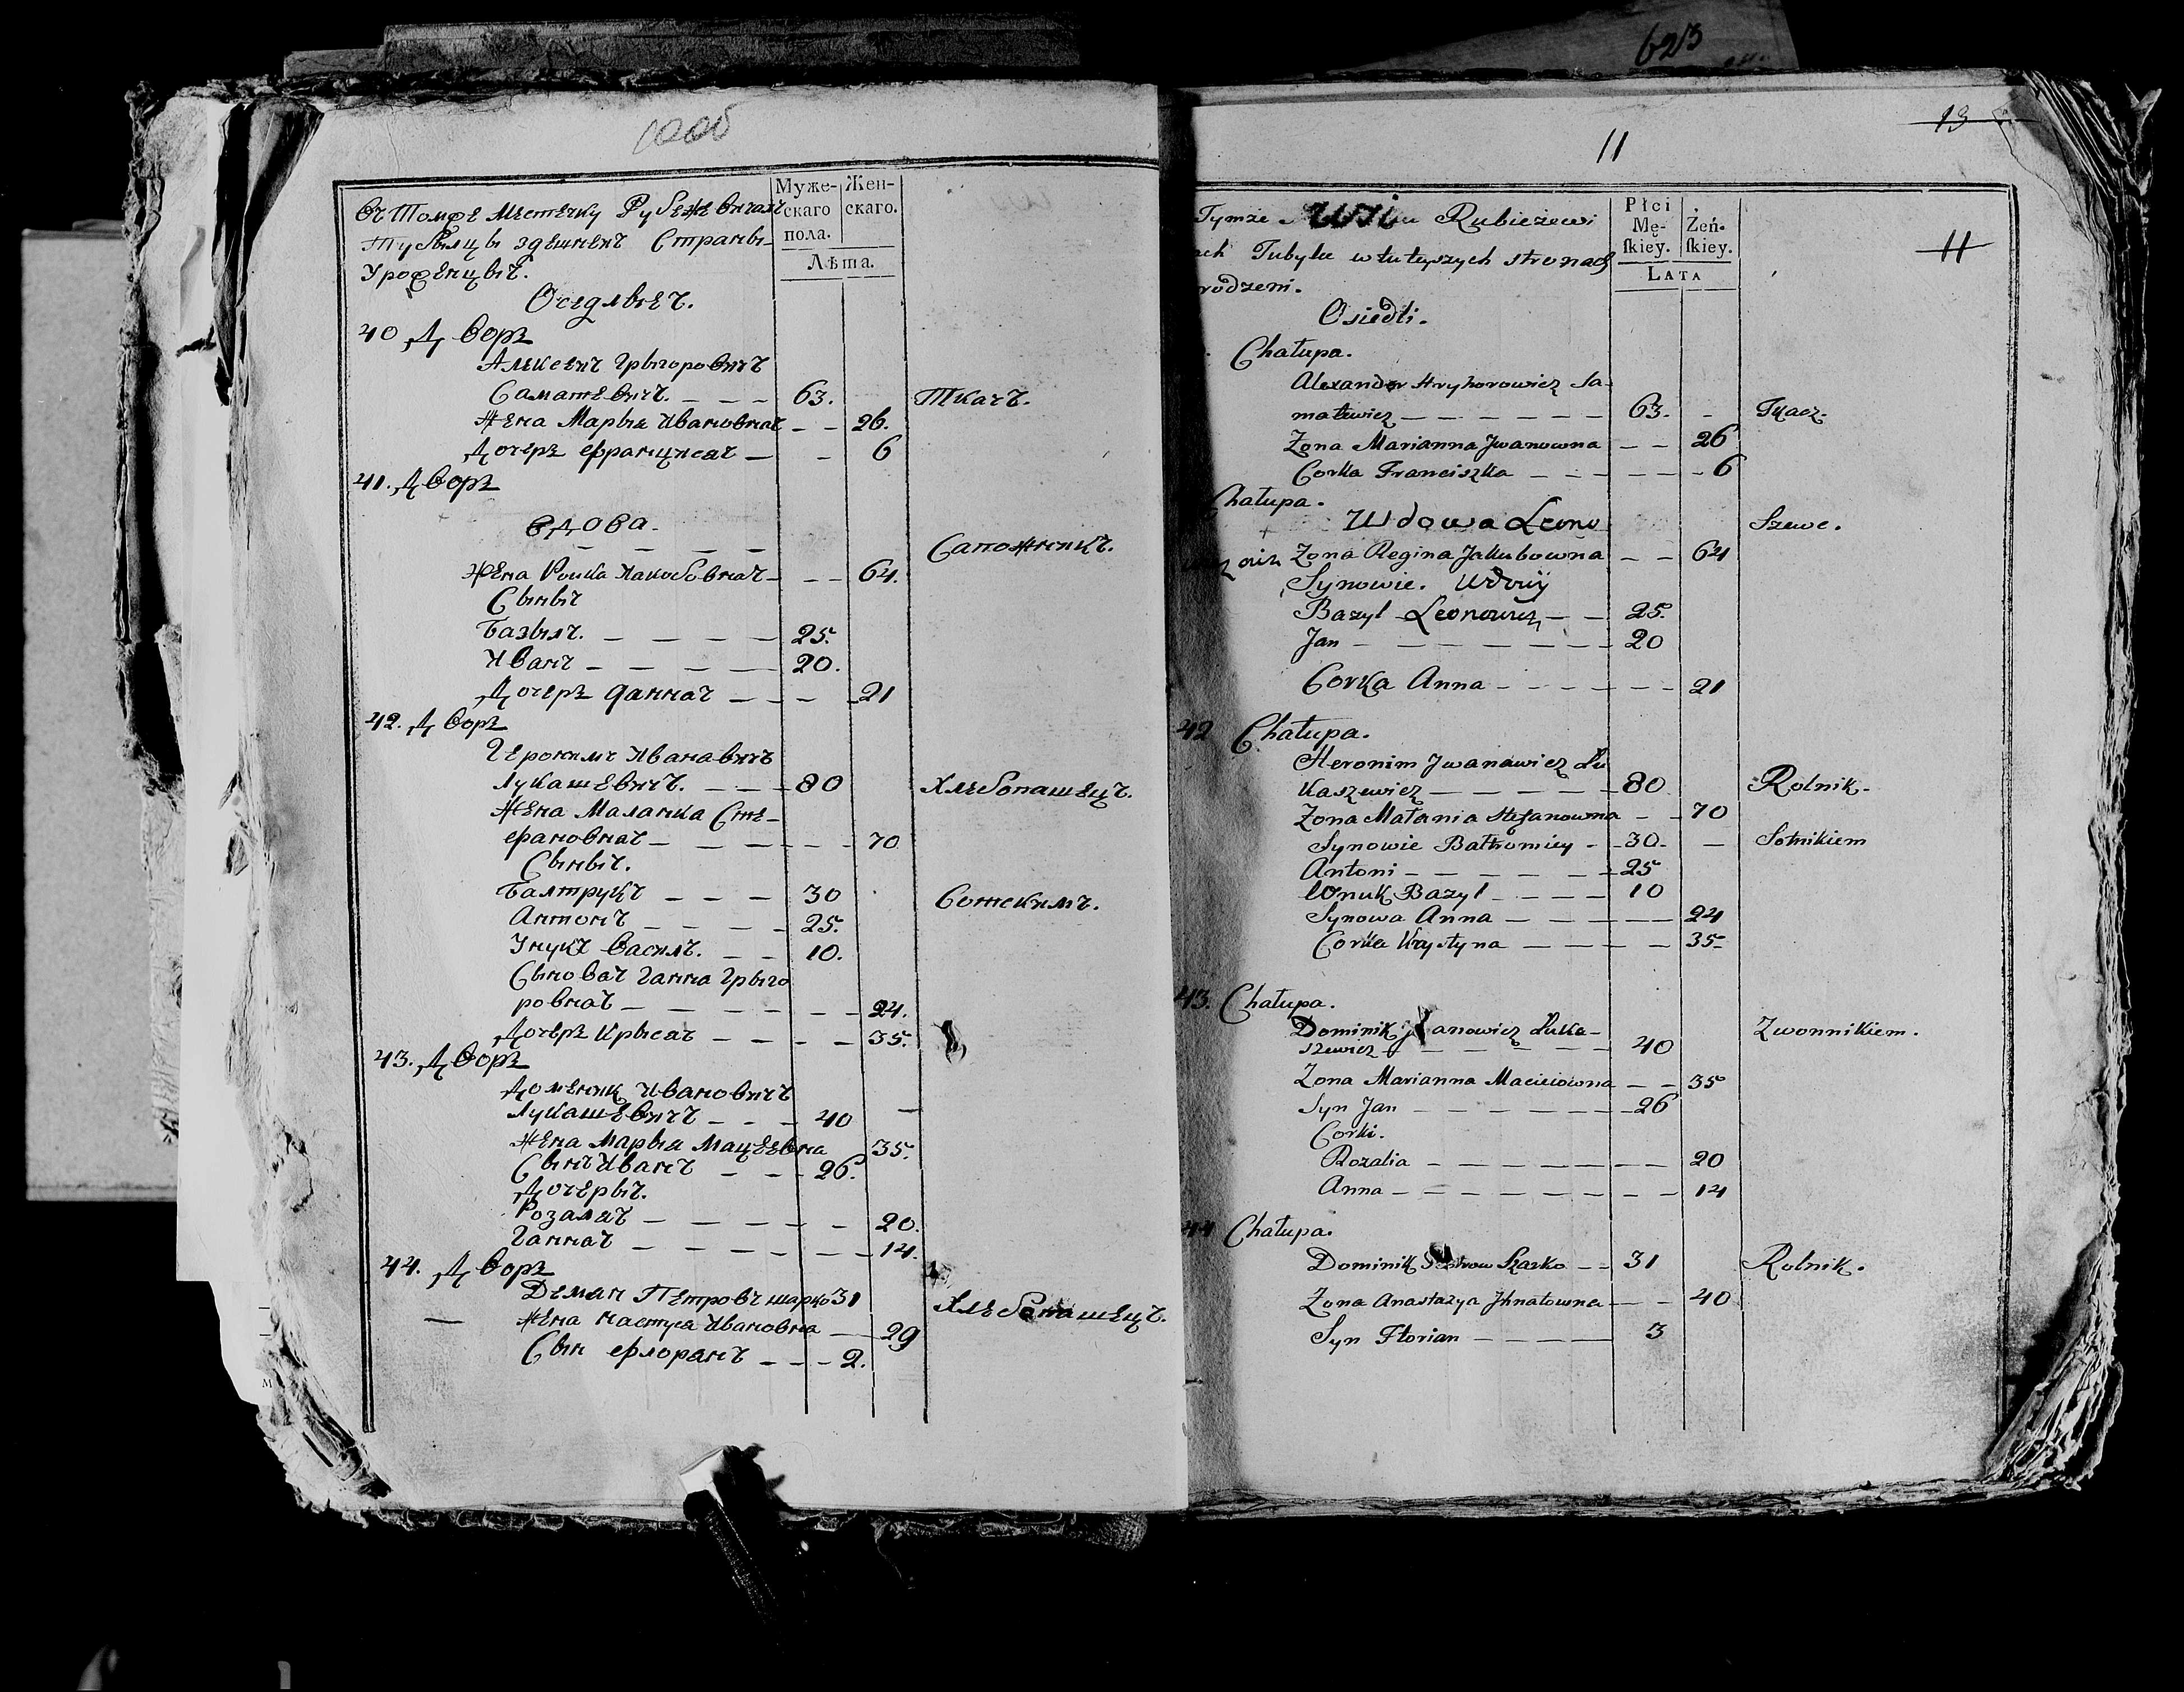 623
10об
Муже- Жен-
скаго скаго.
пола.
Лѣта.
Въ Томже Местечку Рубежевичахъ
Тубыльцы здешнехъ Страны
Уроженцыъ.
Оседлыеъ.
40 Дворъ
Алексеич Грыгоровичъ
Саматевичъ. — — — 63. Ткачъ.
Жена Марыя Ивановнаъ — — 26.
Дочеръ Францисаъ — — 6
41. Дворъ
Вдова.
— — — — Сапожникъ.
Жена Роина Якобовнаъ — — — 64.
Сыныъ
Базылъ. — — — — 25.
Иванъ — — — — 20.
Дочеръ Ганнаъ — — — 21
42. Дворъ
Геронимъ Ивановичъ
Лукашевичъ. — — — 80 Хлебопашецъ.
Жена Маланка Сте-
фановнаъ — — — — — — 70
Сыныъ.
Балтруцъ — — — 30 Сотскимъ.
Антонъ — — — — 25.
Унукъ Василъ. — — 10.
Сыноваъ Ганна Грыго
ровнаъ — — — — — — 24.
Дочеръ Крысаъ — — — — 35.
43. Дворъ
Доменик Ивановичъ
Лукашевичъ — — — 40 —
Жена Марыя Мацеевна 35.
Сынъ Иванъ — — — 26.
Дочерыъ.
Розалаъ — — — — — 20.
Ганнаъ — — — — — — 14.
44. Дворъ
Деман Петровъ Шарко 31 Хлебопашецъ.
— Жена Настуся Ивановна — 29
Сын Флоранъ — — — 2.
11
13
11
Płci
Mę- Żeń-
skiey. skiey.
LATA
Tymże Rubieżewi
ach Tubylce w tuteyszych stronach
rodzeni.
Osiedli.
Chałupa.
Alexander Hryhorowicz Sa-
matewicz — — — — — — 63. - Tkacz.
Żona Marianna Jwanowna — — 26
Corka Franciszka — — — — — — 6
Chałupa.
Wdowa Leono Szewc.
Żona Regina Jakubowna — — 64
Synowie. Wdowy
Bazyl Leonowicz — — 25.
Jan — — — — — — — 20
Corka Anna — — — — — — 21
42 Chałupa.
Heronim Jwanawicz Łu
kaszewicz — — — — — — 80 Rolnik.
Żona Małania Stefanowna — — 70
Synowie Bałtromiey - - 30. — Sotnikiem
Antoni — — — — — — 25
Wnuk Bazyl — — — — 10
Synowa Anna — — — — — 24
Corka Krystyna — — — — — 35.
43. Chałupa.
Dominik Janowicz Łuka- Zwonnikiem.
szewicz — — — — — — 40
Żona Marianna Macieiowna — — 35
Syn Jan — — — — — — — 26
Corki.
Rozalia — — — — — — — 20
Anna — — — — — — — — 14
44 Chałupa.
Dominik Szarko — — 31 Rolnik.
Żona Anastazya Jhnatowna — — 40
Syn Florian — — — — — 3